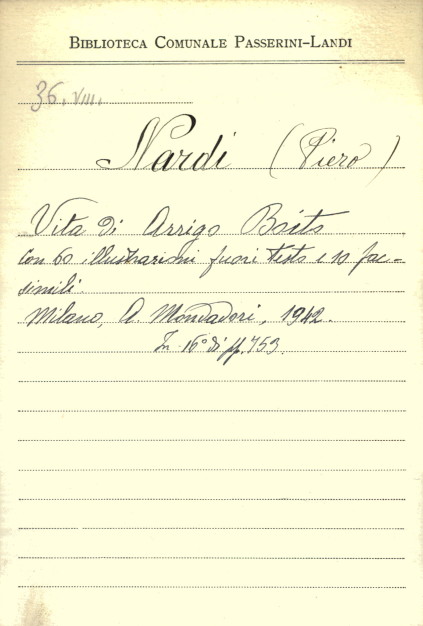 BIBLIOTECA COMUNALE PASSERINI-LANDI
36. VIII.
Nardi (Piero)
Vita di Arrigo Boito
Con 60 illustrazioni fuori testo e 10 fac-
simili.
Milano, A. Mondadori, 1942.
In 16° di pp. 753.